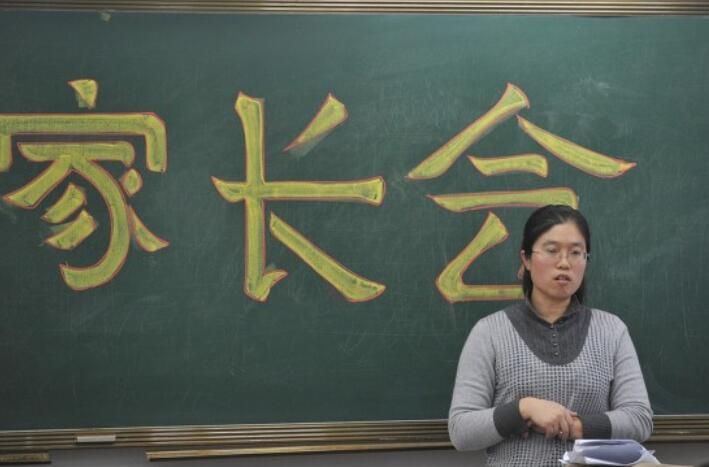 家长会